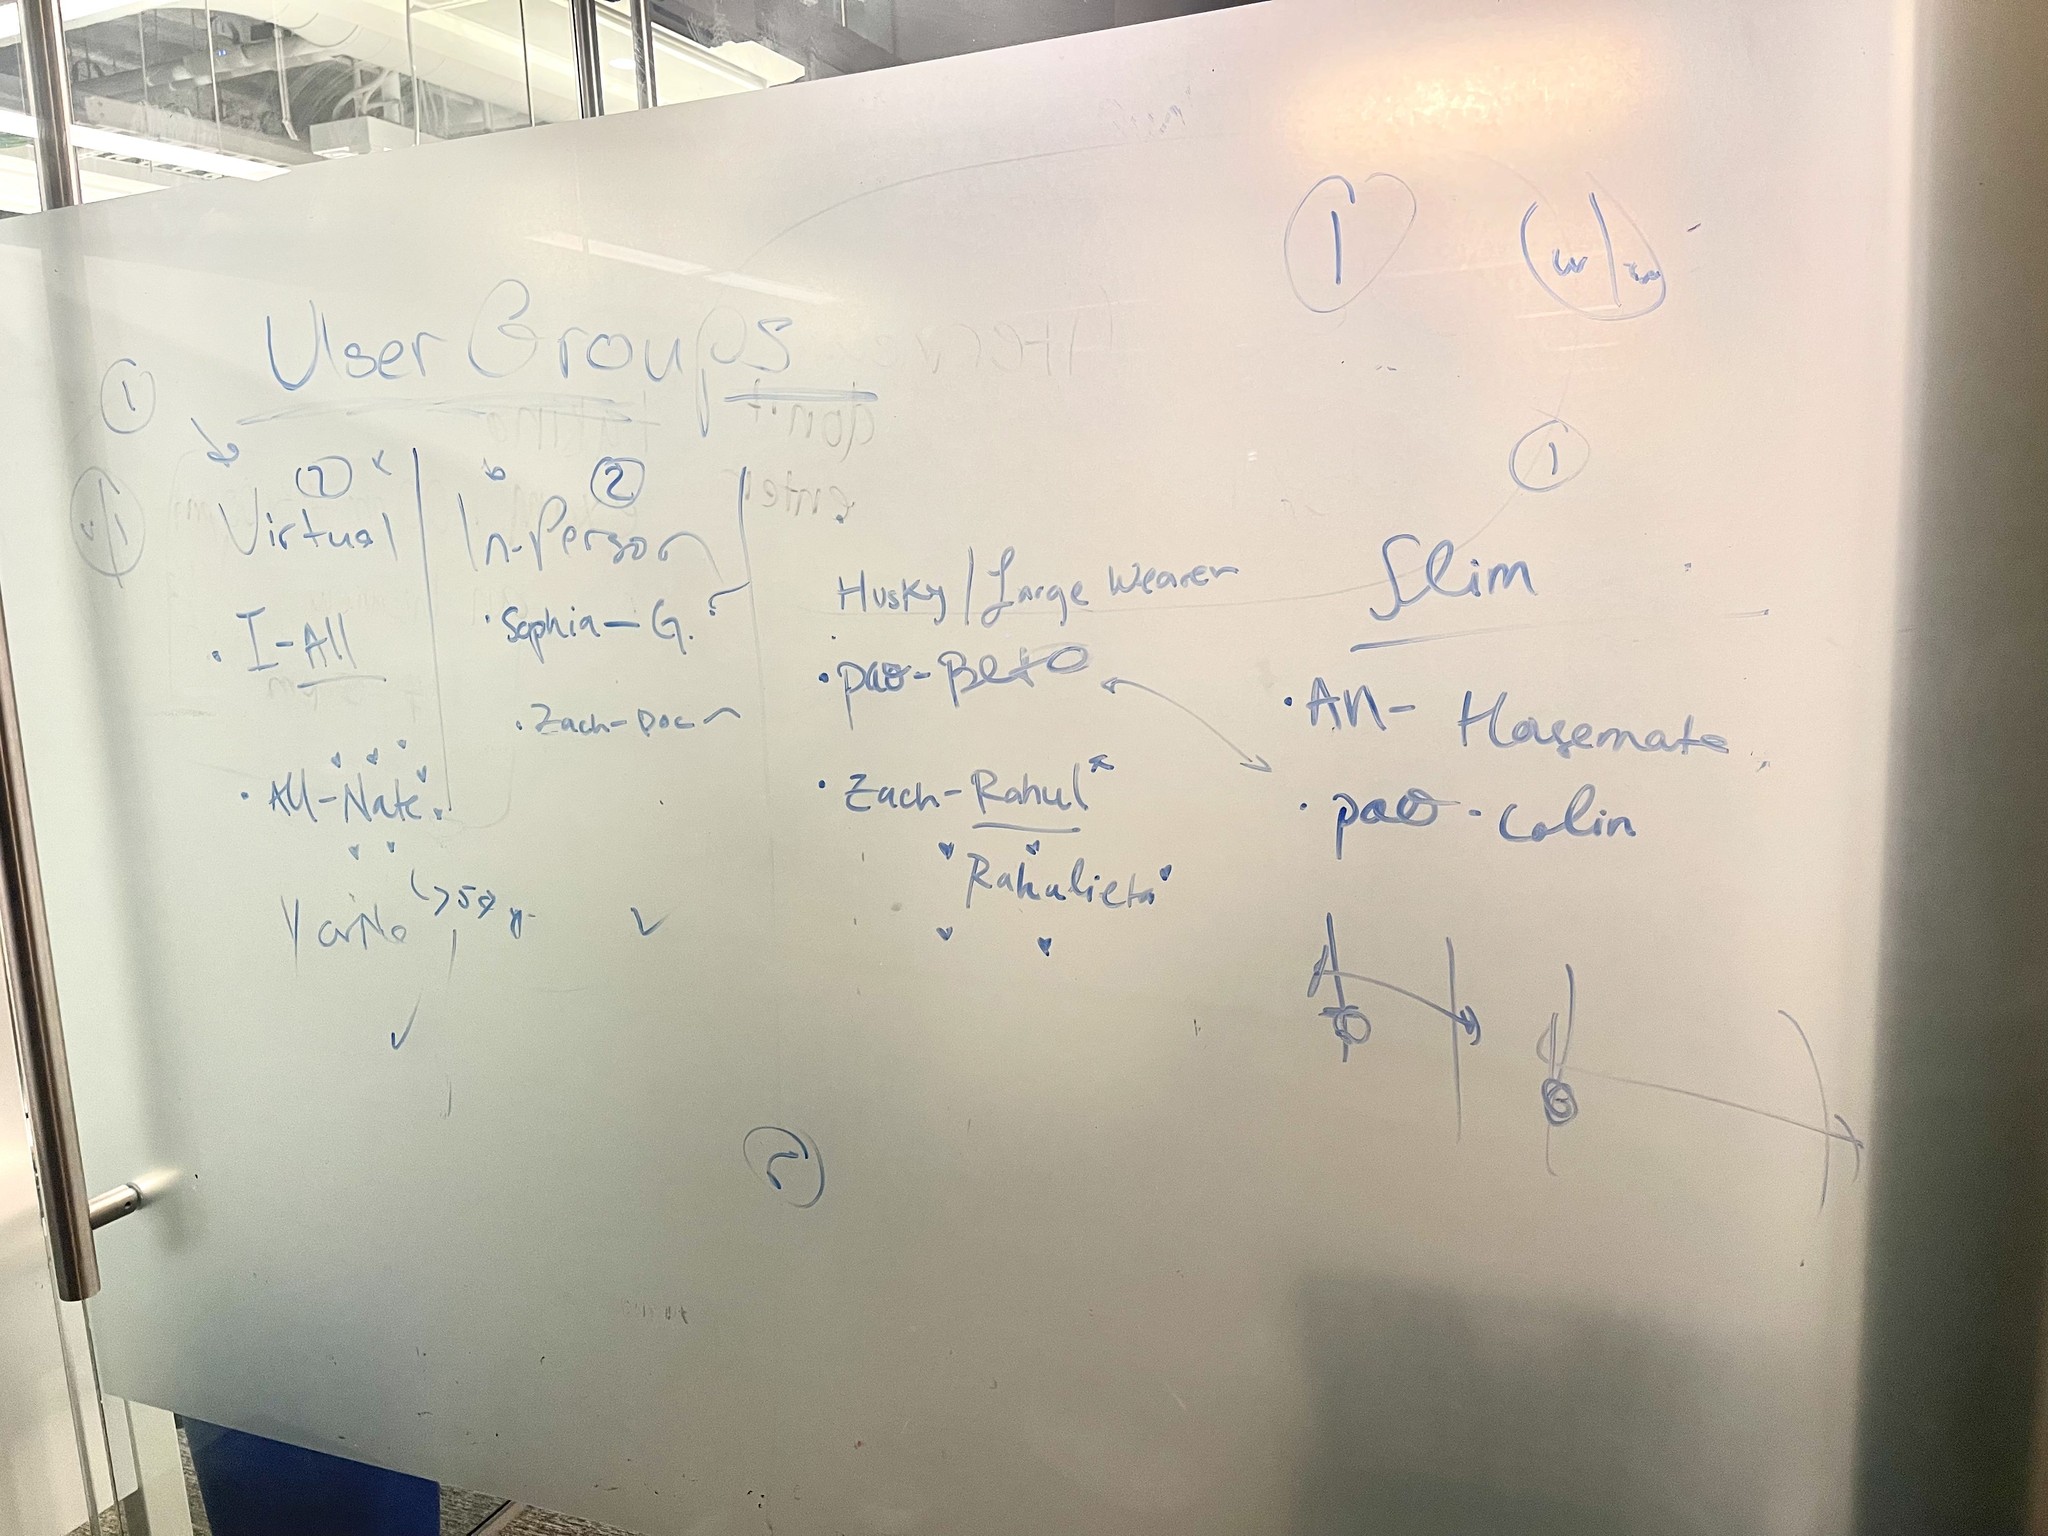 1
1
User Groups
1
2
2
1
Virtual
In-Person
Husky/Large Wearer
Slim
• I-All
• Sophia-G.
• pao-Beto
• An-
• Zach-Doc
• All-Nate
• Zach-Rahul*
• pao-Colin
Rahulieta